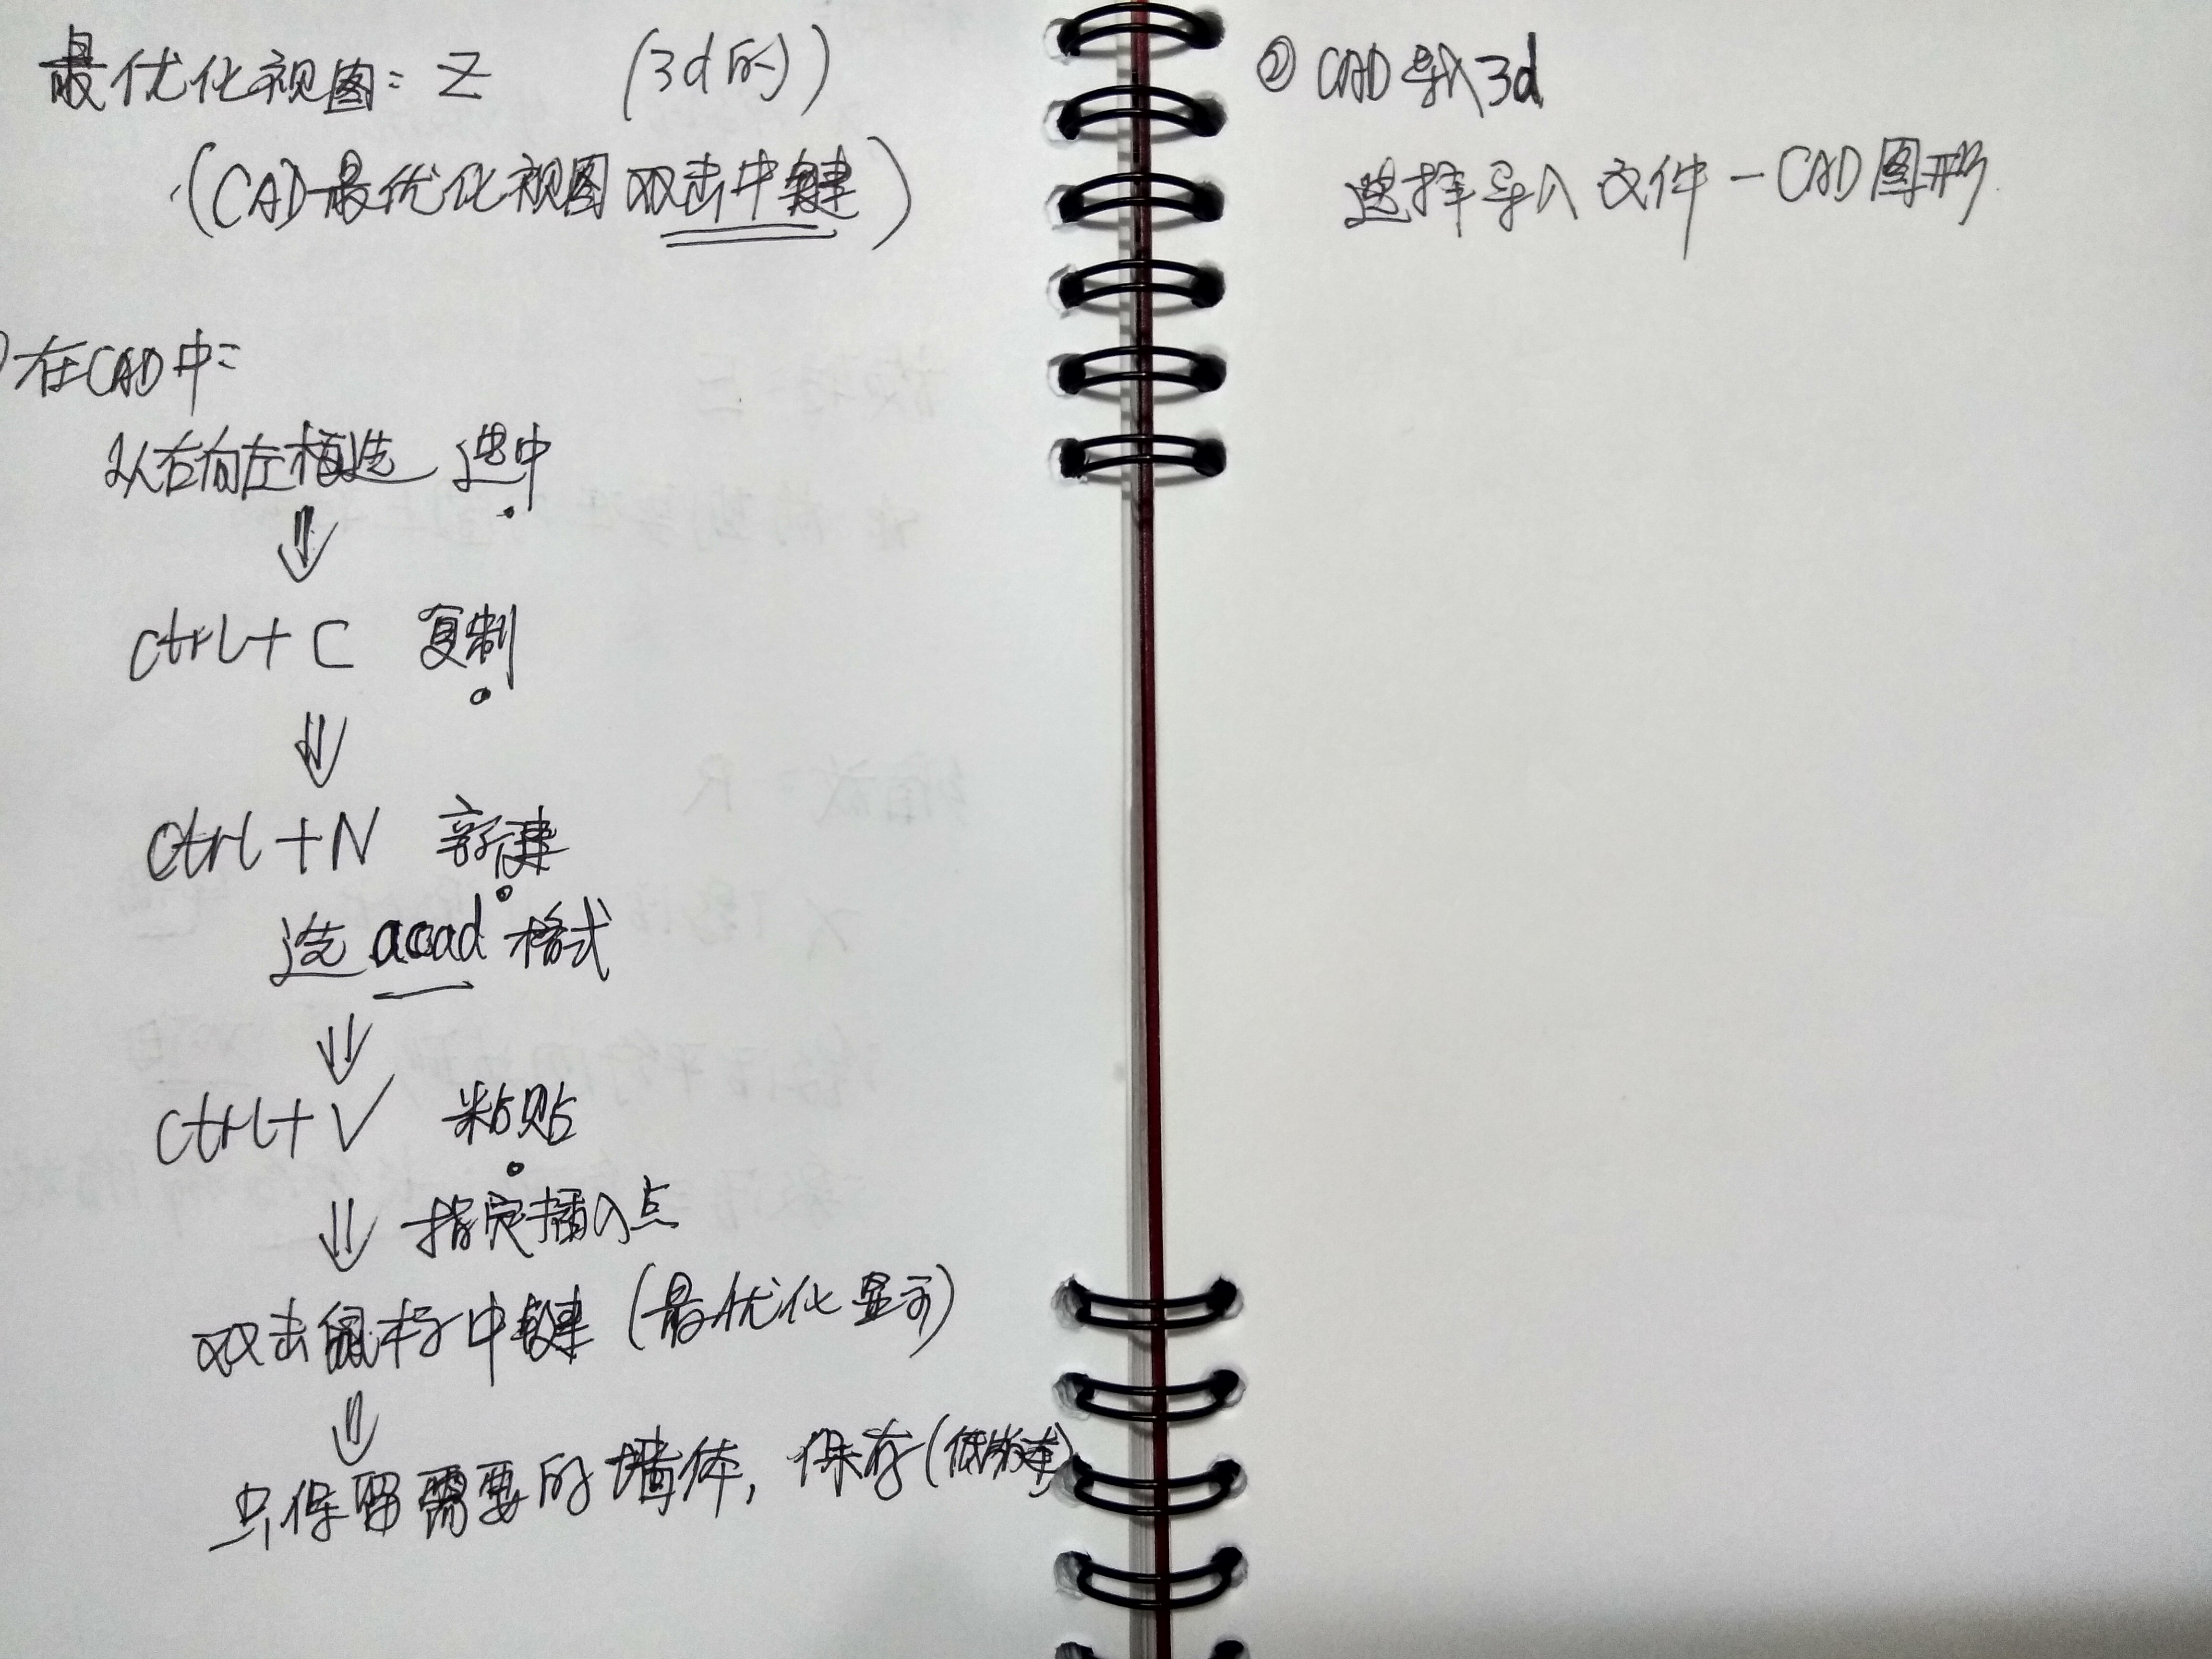 最优化视图: Z (3d的)
(CAD最优化视图 双击中键)
在CAD中:
从右向左框选 选中
⇓
Ctrl+C 复制
⇓
Ctrl+N 新建
选 acad 格式
⇓
Ctrl+V 粘贴
⇓ 指定插入点
双击鼠标中键 (最优化显示)
⇓
只保留需要的墙体, 保存(低版本)
② CAD导入3d
选择导入文件-CAD图形